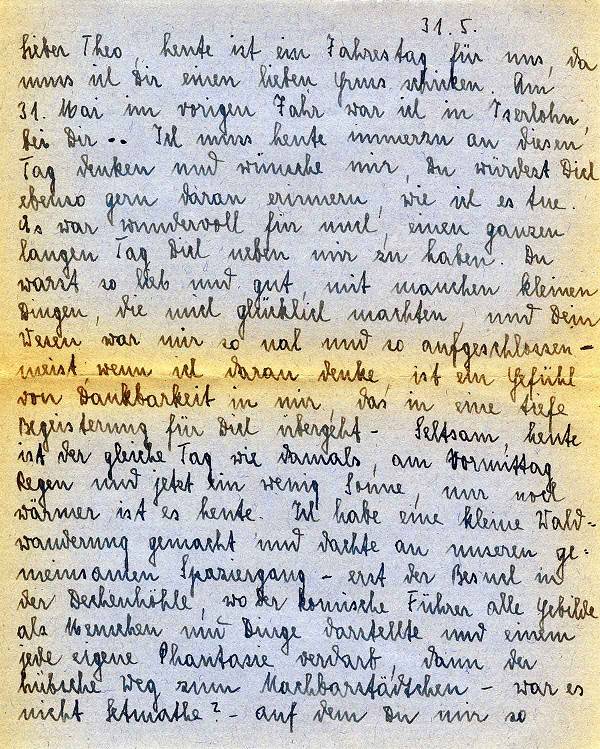 31. 5.
Lieber Theo, heute ist ein Jahrestag für uns, da
muss ich Dir einen lieben Gruss schicken. Am
31. Mai im vorigen Jahr war ich in Iserlohn,
bei Dir .. Ich muss heute immerzu an diesen
Tag denken und wünsche mir, Du würdest Dich
ebenso gern daran erinnern, wie ich es tue.
Es war wundervoll für mich, einen ganzen
langen Tag Dich neben mir zu haben. Du
warst so lieb und gut, mit manchen kleinen
Dingen, die mich glücklich machten, und Dein
Wesen war mir so nah und so aufgeschlossen -
meist, wenn ich daran denke, ist ein Gefühl
von Dankbarkeit in mir, das in eine tiefe
Begeisterung für Dich übergeht - Seltsam, heute
ist der gleiche Tag wie damals, am Vormittag
Regen und jetzt ein wenig Sonne, nur noch
wärmer ist es heute. Ich habe eine kleine Wald-
wanderung gemacht und dachte an unseren ge-
meinsamen Spaziergang - erst der Besuch in
der Dechenhöhle, wo der komische Führer alle Gebilde
als Menschen und Dinge darstellte und einem
jede eigene Phantasie verdarb, dann der
hübsche Weg zum Nachbarstädtchen - war es
nicht Letmathe? - auf dem Du mir so